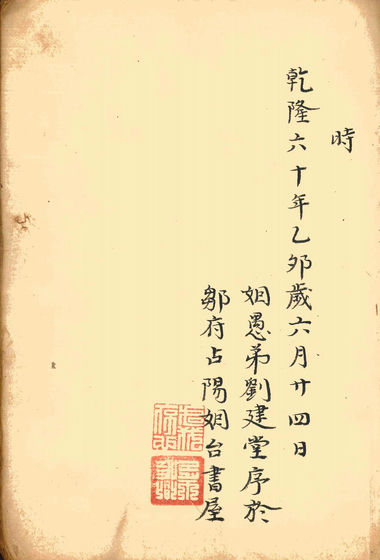 時
乾隆六十年乙卯歲六月廿四日
姻愚弟劉建堂序於
鄒府占陽姻台書屋